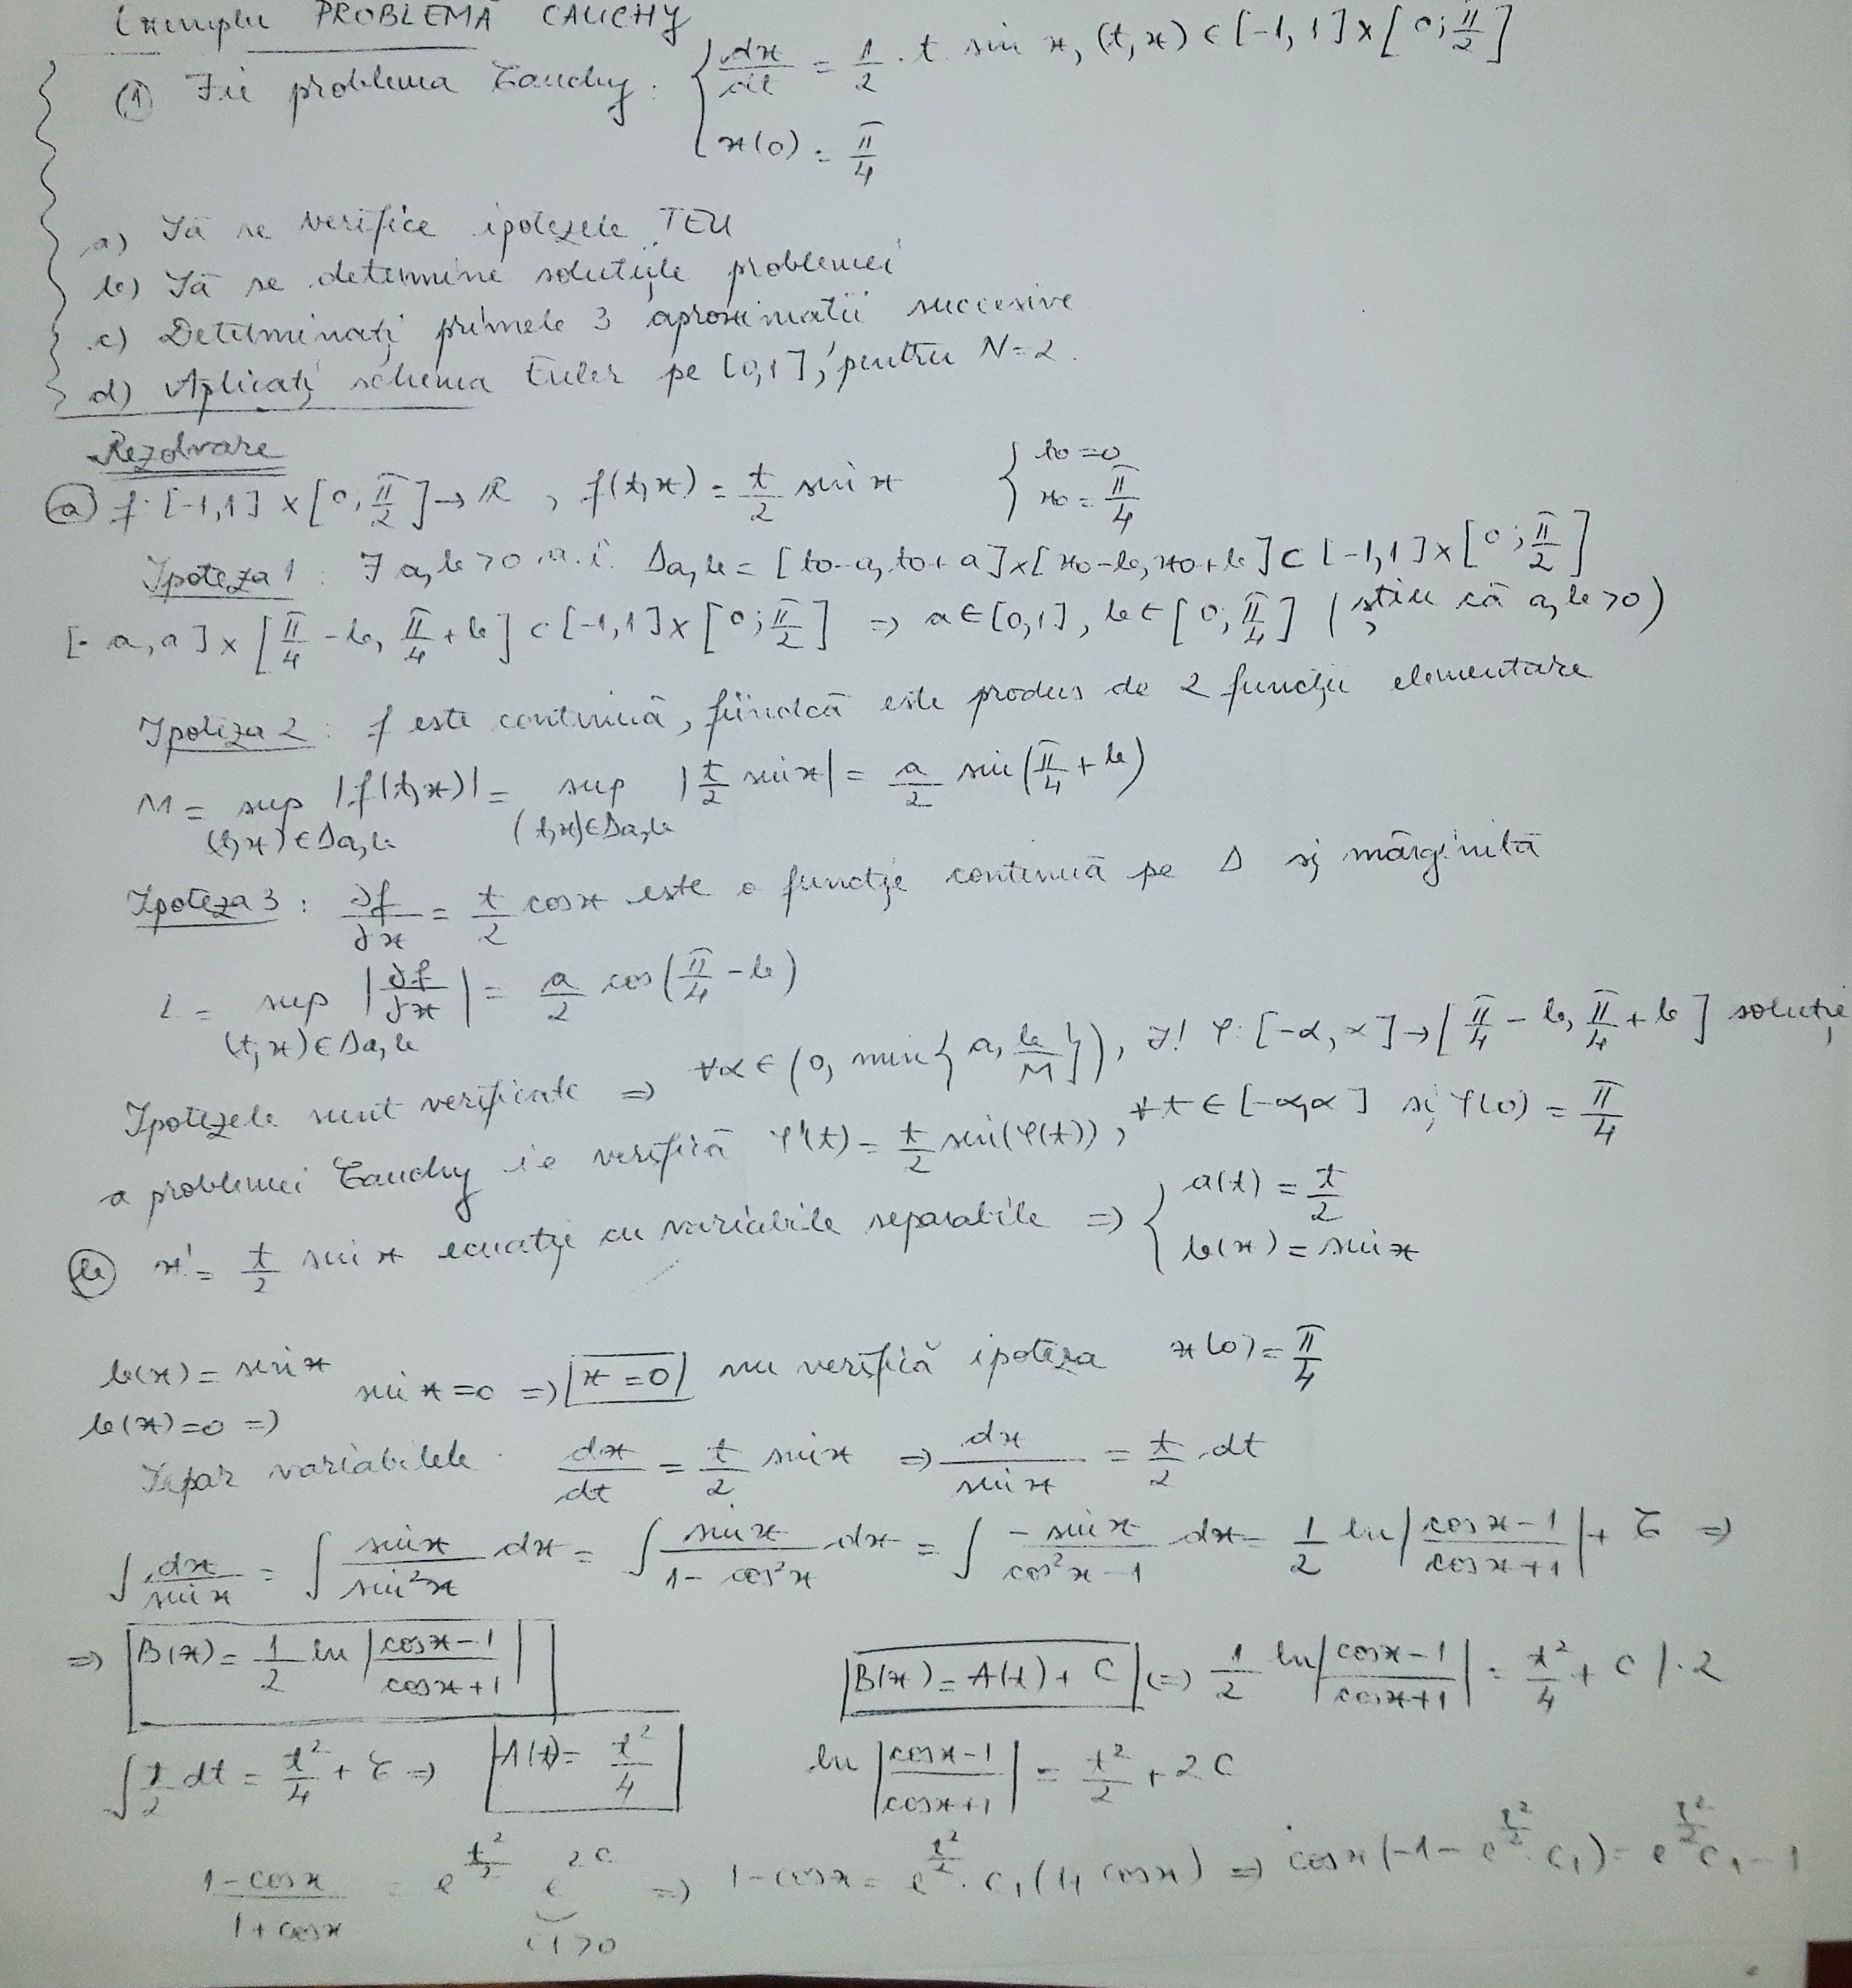 Exemplu PROBLEMĂ CAUCHY
(1) Fie problema Cauchy: { dx/dt = 1/2 · t sin x, (t,x) ∈ [-1,1] × [0; π/2]
x(0) = π/4
a) Să se verifice ipotezele TEU
b) Să se determine soluțiile problemei
c) Determinați primele 3 aproximatii succesive
d) Aplicați schema Euler pe [0,1], pentru N=2.
Rezolvare
(a) f: [-1,1] × [0, π/2] → ℝ, f(t,x) = t/2 sin x { t0 = 0
x0 = π/4
Ipoteza 1: ∃ a,b > 0 a.î. Δa,b = [t0-a, t0+a] × [x0-b, x0+b] ⊂ [-1,1] × [0; π/2]
[-a,a] × [π/4 - b, π/4 + b] ⊂ [-1,1] × [0; π/2] ⇒ a ∈ [0,1], b ∈ [0; π/4] (știu că a,b > 0)
Ipoteza 2: f este continuă, fiindcă este produs de 2 funcții elementare
M = sup |f(t,x)| = sup |t/2 sin x| = a/2 sin(π/4 + b)
(t,x) ∈ Δa,b (t,x) ∈ Δa,b
Ipoteza 3: ∂f/∂x = t/2 cos x este o funcție continuă pe Δ și mărginită
L = sup |∂f/∂x| = a/2 cos(π/4 - b)
(t,x) ∈ Δa,b
Ipotezele sunt verificate ⇒ ∀α ∈ (0, min{a, b/M}), ∃! φ: [-α, α] → [π/4 - b, π/4 + b] soluție
a problemei Cauchy i.e verifică φ'(t) = t/2 sin(φ(t)), ∀t ∈ [-α,α] și φ(0) = π/4
(b) x' = t/2 sin x ecuație cu variabile separabile ⇒ { a(t) = t/2
b(x) = sin x
b(x) = sin x
b(x) = 0 ⇒ sin x = 0 ⇒ x = 0 nu verifică ipoteza x(0) = π/4
Separ variabilele. dx/dt = t/2 sin x ⇒ dx/sin x = t/2 dt
∫ dx/sin x = ∫ sin x/sin²x dx = ∫ sin x/(1 - cos²x) dx = ∫ -sin x/(cos²x - 1) dx = 1/2 ln|(cos x - 1)/(cos x + 1)| + C ⇒
⇒ B(x) = 1/2 ln|(cos x - 1)/(cos x + 1)| B(x) = A(t) + C (=) 1/2 ln|(cos x - 1)/(cos x + 1)| = t²/4 + C | · 2
∫ t/2 dt = t²/4 + C ⇒ A(t) = t²/4 ln|(cos x - 1)/(cos x + 1)| = t²/2 + 2C
(1 - cos x)/(1 + cos x) = e^(t²/2) e^(2C) ⇒ 1 - cos x = e^(t²/2) · C1 (1+ cos x) ⇒ cos x (-1 - e^(t²/2) · C1) = e^(t²/2) C1 - 1
C1 > 0